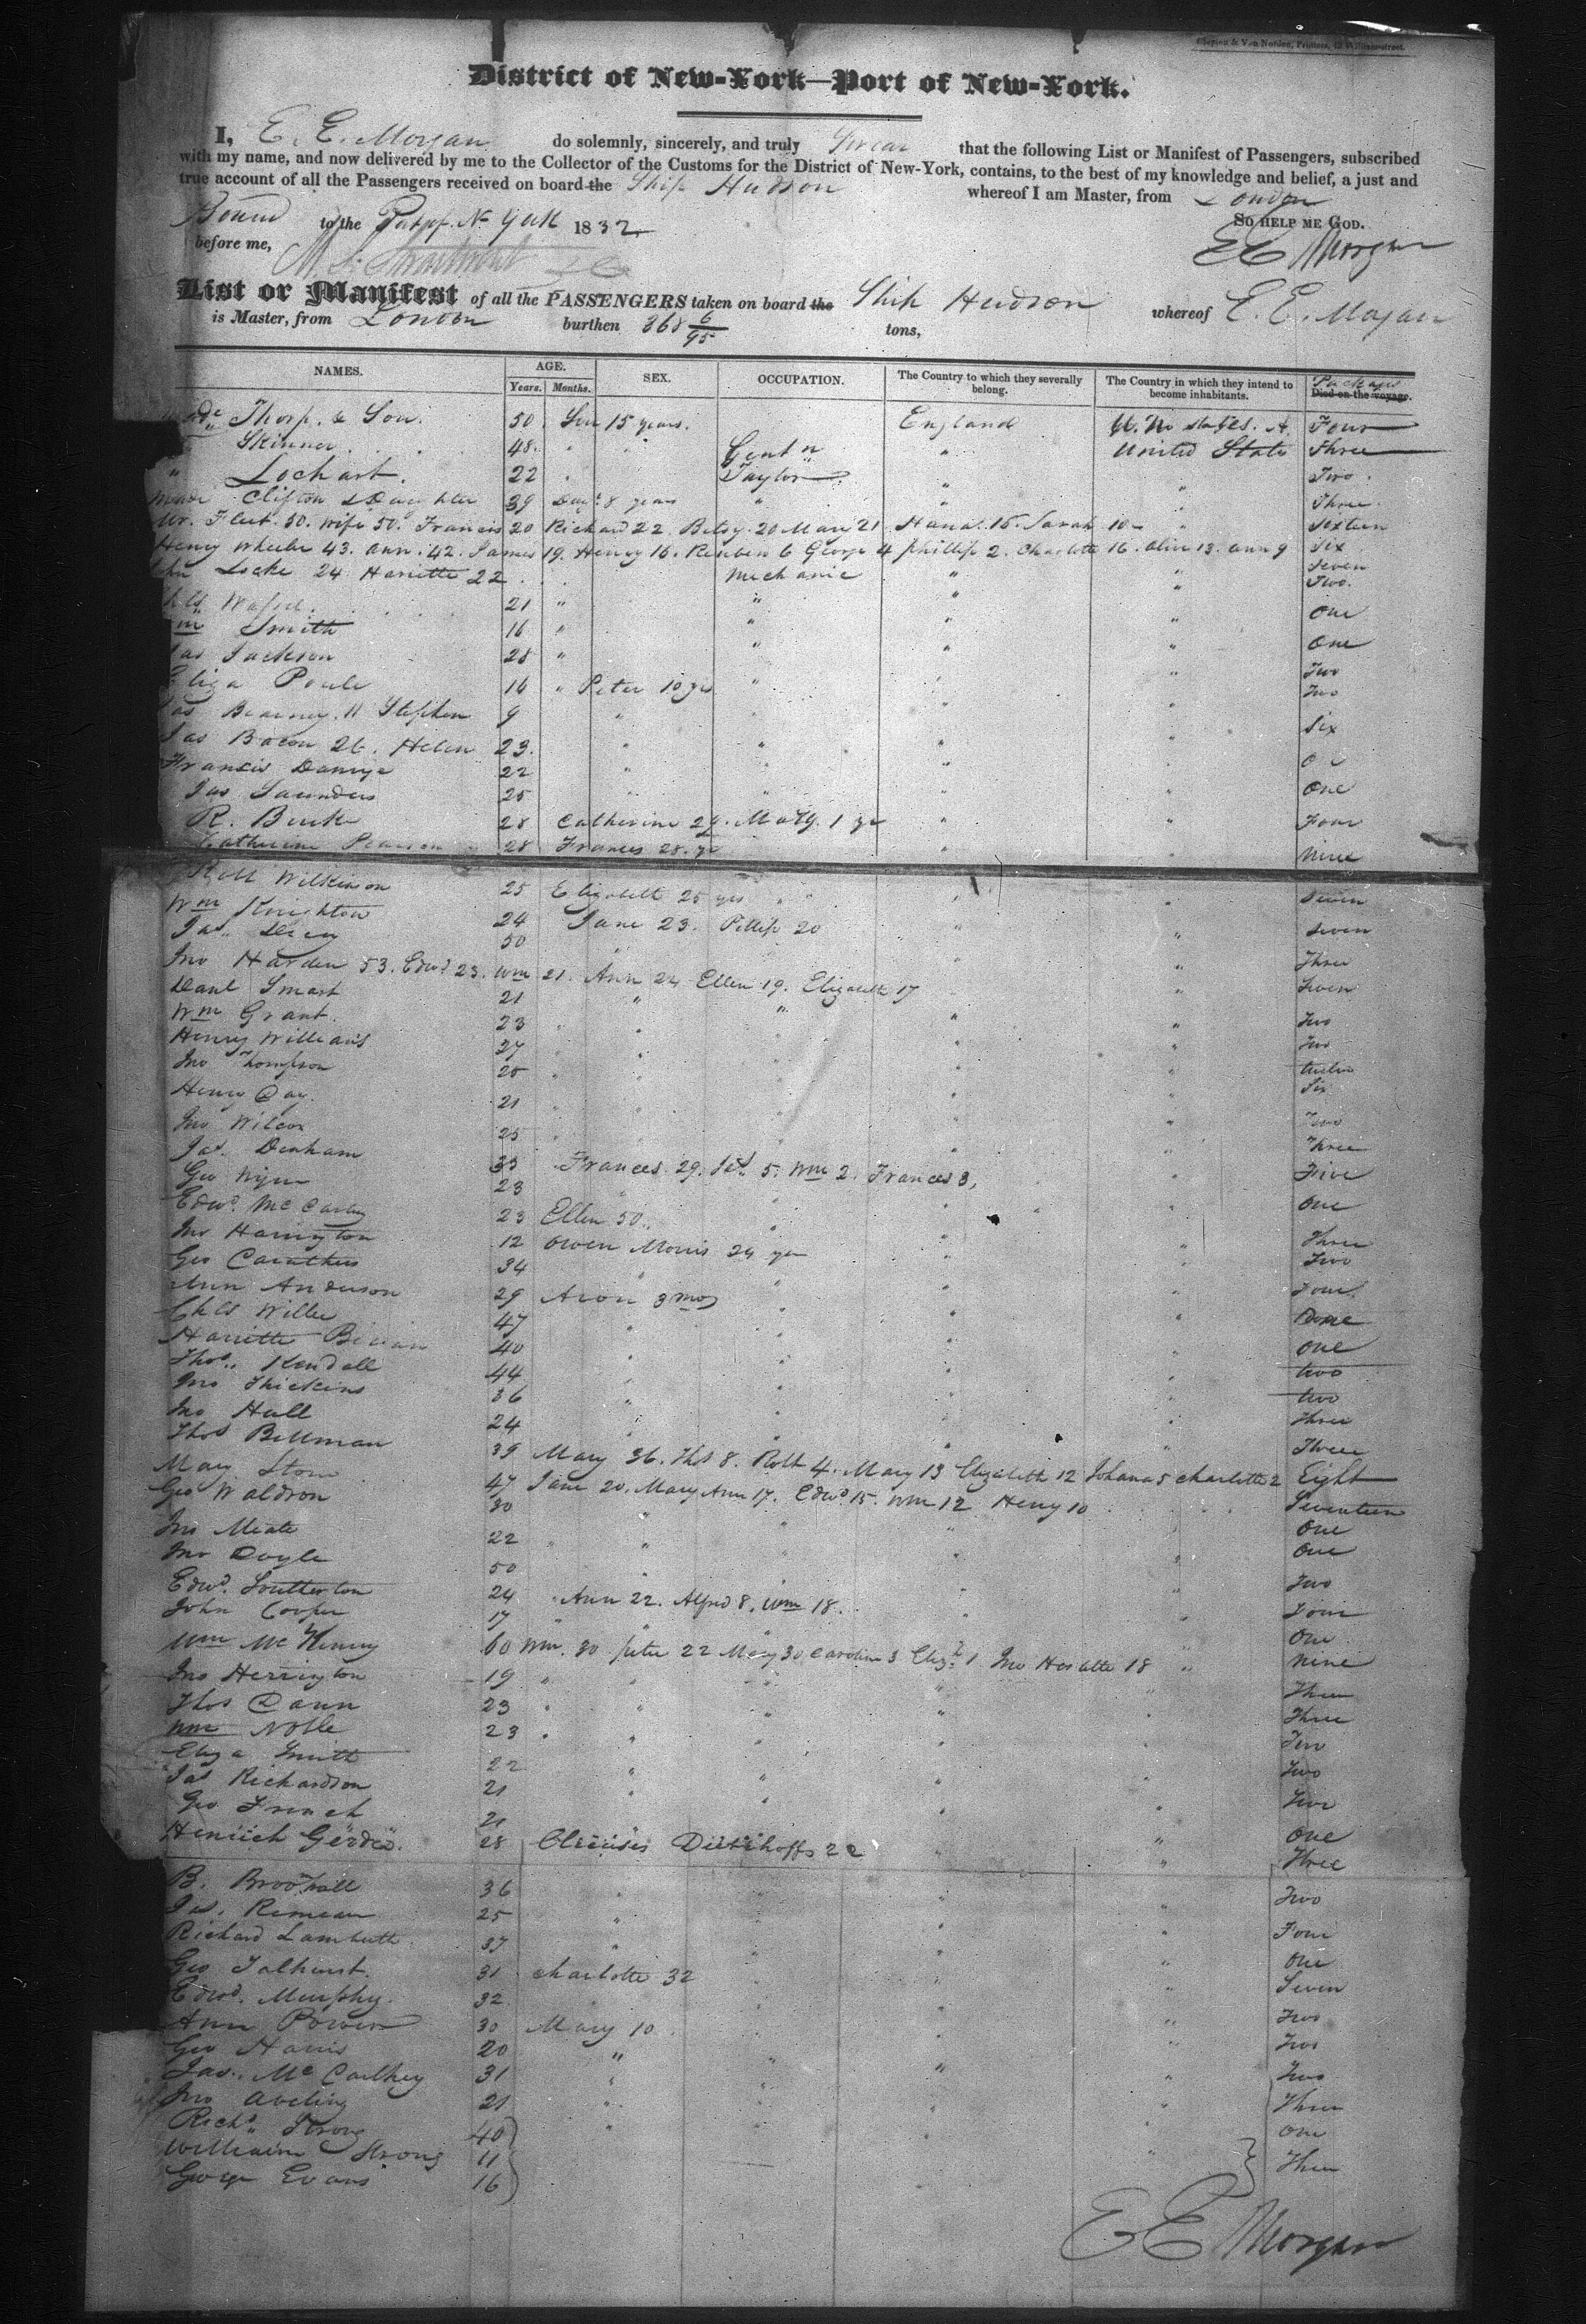 Clayton & Van Norden, Printers, 42 William-street.
District of New-York—Port of New-York.
I, E. E. Morgan do solemnly, sincerely, and truly Swear that the following List or Manifest of Passengers, subscribed
with my name, and now delivered by me to the Collector of the Customs for the District of New-York, contains, to the best of my knowledge and belief, a just and
true account of all the Passengers received on board the Ship Hudson whereof I am Master, from London
Bound to the N York 1832
So help me God.
before me,
E E Morgan
List or Manifest of all the PASSENGERS taken on board the Ship Hudson whereof E. E. Morgan
is Master, from London burthen 368 6/95 tons,
NAMES. AGE. SEX. OCCUPATION. The Country to which they severally belong. The Country in which they intend to become inhabitants. Packages Died on the voyage.
Years. Months.
Thorp. & Son. 50 Son 15 years. England States. A. Four
Skinner 48 " " Gentn " United State Three
" Lochart. 22 " Taylor " " Two
Clifton & Daughter 39 Daugt 8 years " " " Three
Mr. Fleet. 50. Wife 50. Francis 20 Richard 22 Betsy. 20 Mary 21 Hana. 15. Sarah 10 " Sixteen
Henry Wheeler 43. Ann. 42. James 19. Henry 16. Reuben 6 George 4 Phillip 2. Charlotte 16. Olive 13. Ann 9 Six
Locke 24 Hariette 22 Mechanic " " Seven
Two.
21 " " " "
Smith 16 " " " " One
Jas Jackson 28 " " " " One
Eliza Poule 16 " Peter 10 yrs " " " Two
Two
Jas Bearney. 11 Stephen 9 " "
Jas Bacon 26. Helen 23. " " " " Six
Francis 22 " " "
Jas Saunders 25 " " " One
R. Burk 28 Catherine 29. Mary. 1 yr " " Four
Catherine Pearson 28 Frances 28. yr " " Nine
Robt Wilkinson 25 Elizabeth 25 yrs " " " Seven
Wm Knighton 24 Jane 23. Phillip 20 " " Seven
Jas. 50 " Three
Jno Harden 53. Edwd 23. Wm 21. Ann 24 Ellen 19. Elizabeth 17 " Seven
Danl Smart 21 " " "
Wm Grant. 23 " " " " Two
Henry Williams 27 " " " " Two
Jno Thompson 25 " " " " twelve
Henry Day. 21 " " " " Six
Jno Wilcox 25 " " " " Two
Jas. Denham 33 Frances. 29. Jas. 5. Wm 2. Frances 3, Three
Geo 23 " " Five
Edwd. McCarty 23 Ellen 50. " " " One
Jno Harrington 12 Owen Morris 24 yrs " " Three
Geo Caruthers 34 " " " Two
Ann Anderson 29 Aron 3 mos " " Four.
Chls Willie 47 " " " "
Hariette 40 " " " One
Thos. Kendall 44 " " " two
Jno Thickins 36 " " " two
Jno Hull 24 " " " Three
Thos Bellman 39 Mary 36. Thos 8. Robt 4. Mary 13 Elizabeth 12 Johana 5 Charlotte 2 Three
Mary Stone 47 Jane 20. Mary Ann 17. Edwd. 15. Wm 12 Henry 10 Eight
Geo Waldron 30 " " " Seventeen
Jno Meate 22 " " " One
Jno Doyle 50 " " One
Edwd. Soutterton 24 " Ann 22. Alfred 8. Wm 18. " " Two
John Cooper 17 " " " Four
Wm McKenny 60 Wm. 30 Peter 22 Mary 30 Caroline 3 Elizh 1 Jno 18 " One
Jno Herrington 19 " " " " Nine
Thos Dann 23 " " " " Three
Wm Noble 23 " " " " Three
Eliza Smith 22 " " " " Two
Jas Richardson 21 " " " " Two
Geo French 21 " "
Heniich Gerdes. 28 22 " " One
Three
B. Broothall 36 " " " Two
Jas. 25 " " "
Richard Lambeth 37 " " " Four
Geo Talhurst. 31 Charlotte 32 " " One
Edwd. Murphy. 32 " " " Seven
Ann Power 30 Mary 10 " " Two
Geo Harris 20 " " " Two
Jas. McCarthey 31 " " " Two
Jno Aveling 21 " " " Three
Richd. Strong 40 " " " One
William Strong 11 " Three
George Evans 16
E E Morgan